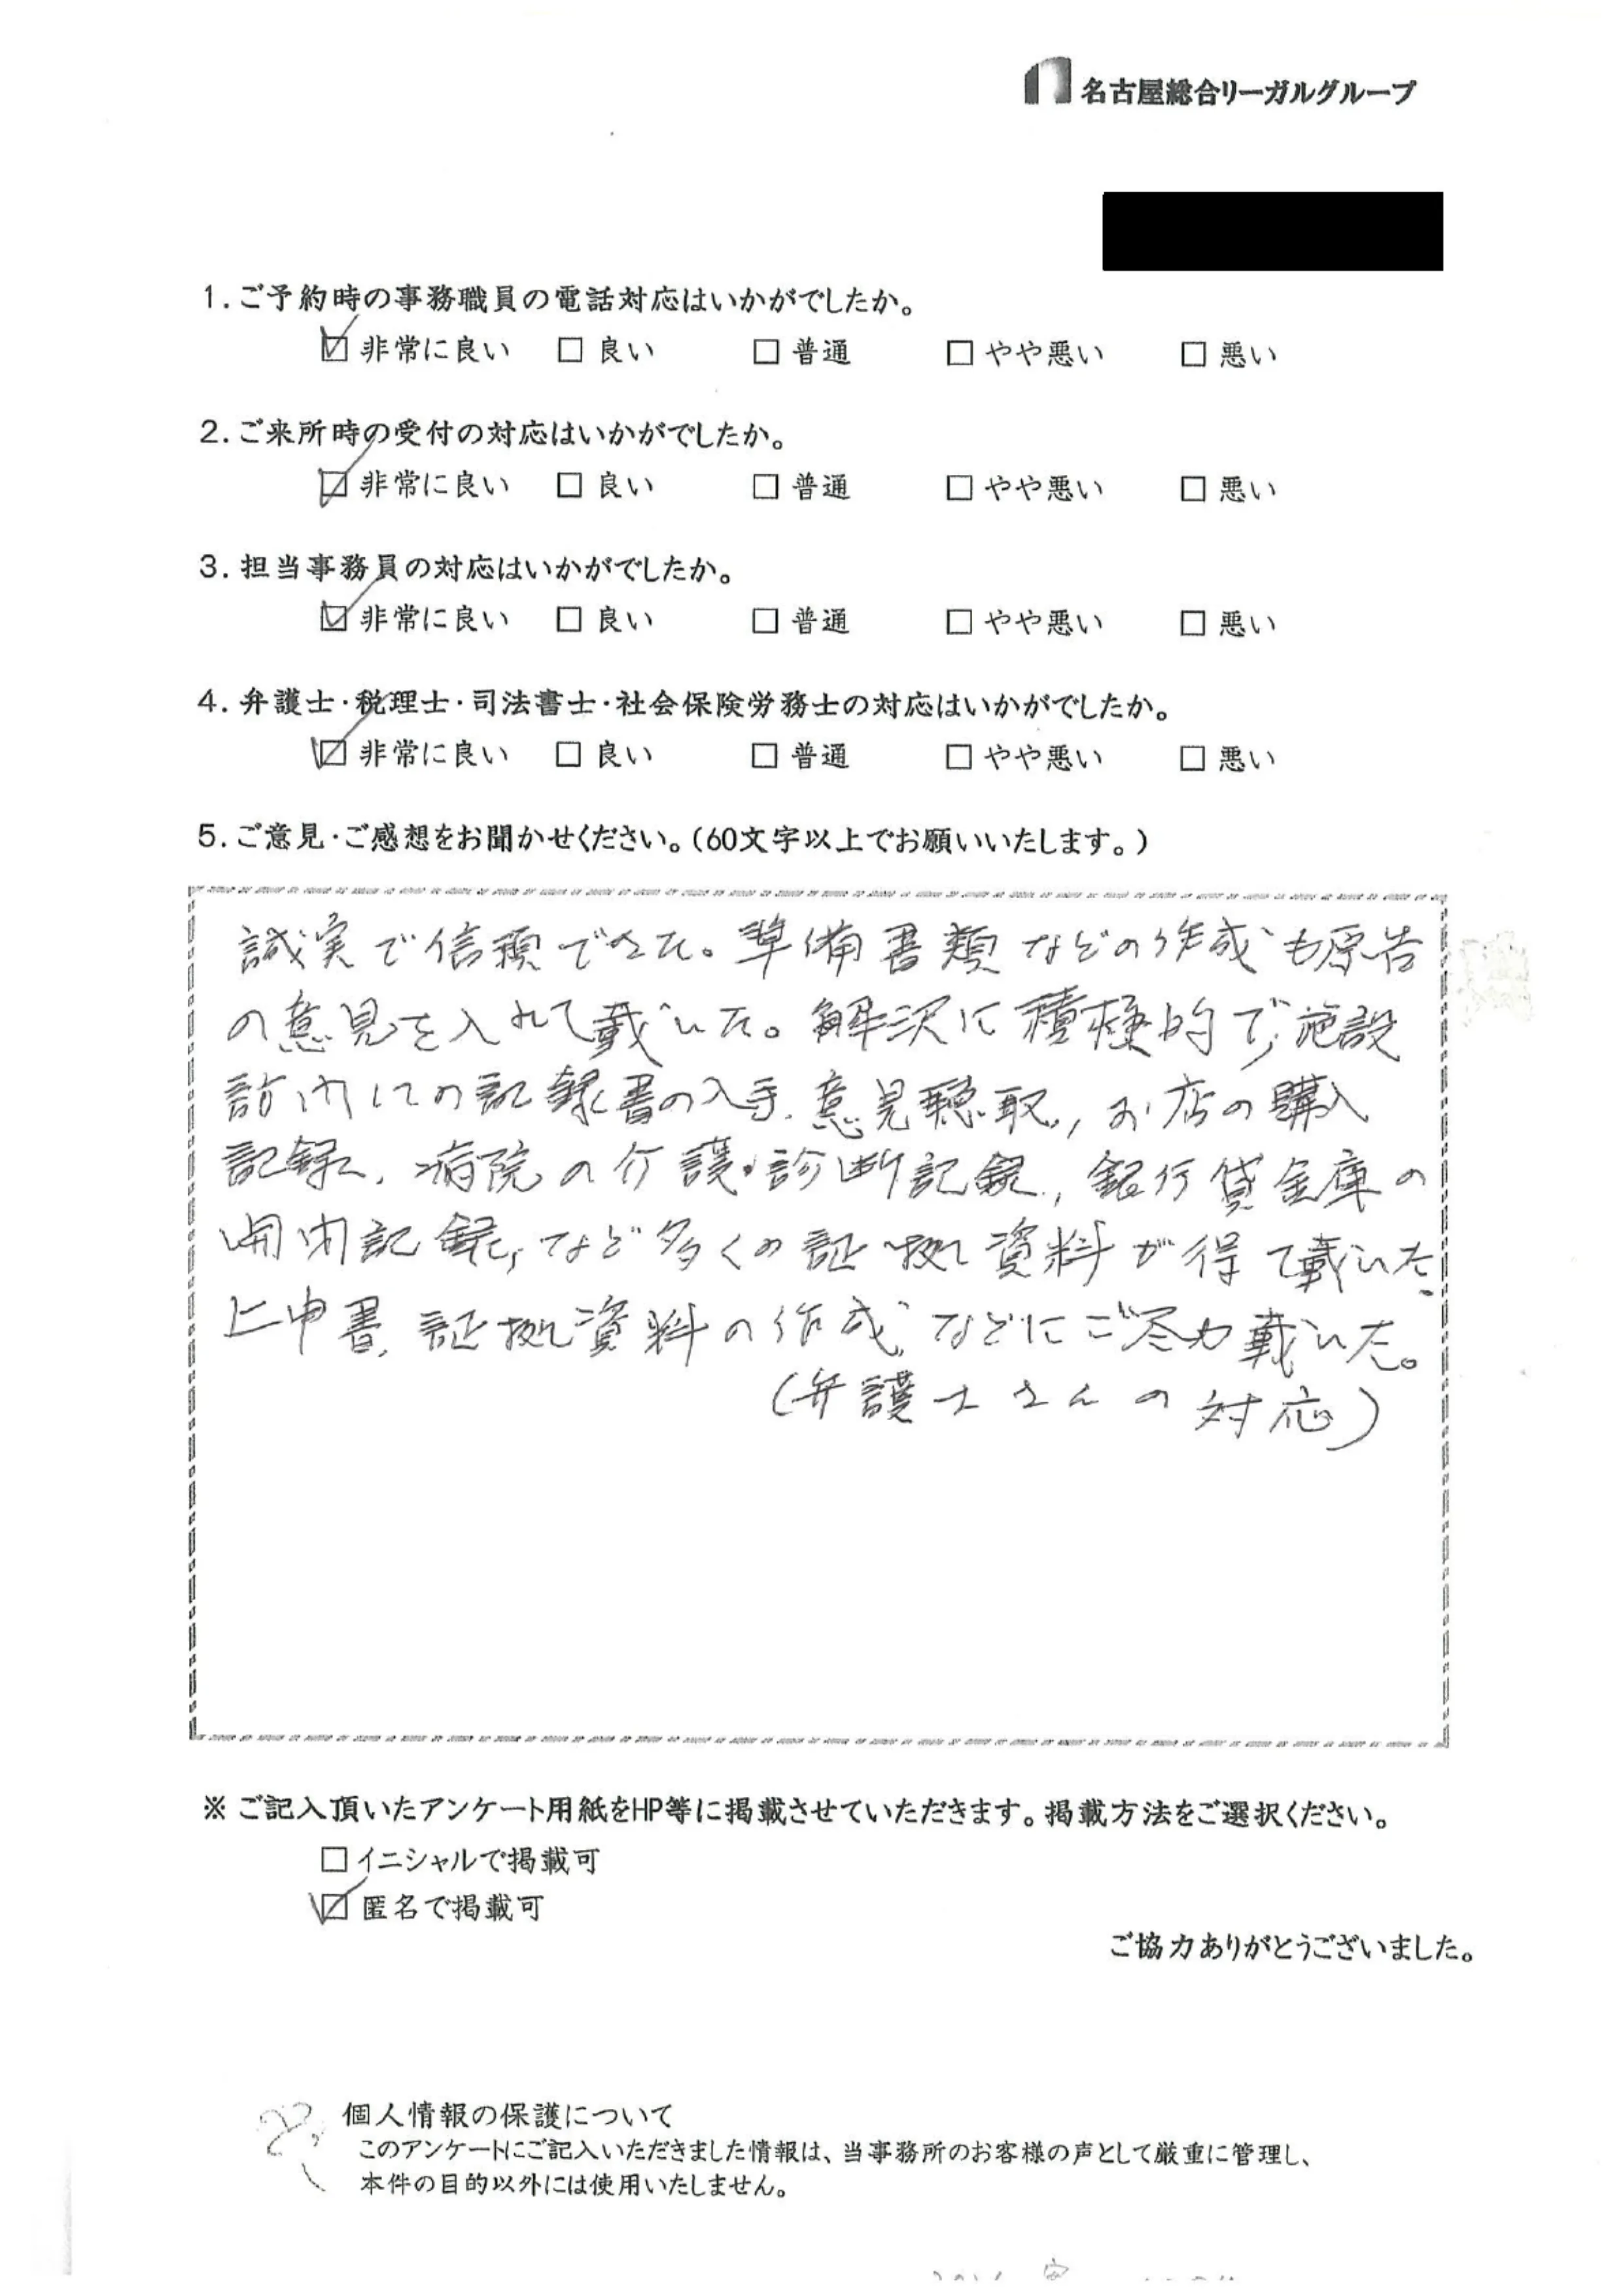 名古屋総合リーガルグループ
1.ご予約時の事務職員の電話対応はいかがでしたか。
☑非常に良い □良い □普通 □やや悪い □悪い
2.ご来所時の受付の対応はいかがでしたか。
☑非常に良い □良い □普通 □やや悪い □悪い
3.担当事務員の対応はいかがでしたか。
☑非常に良い □良い □普通 □やや悪い □悪い
4.弁護士・税理士・司法書士・社会保険労務士の対応はいかがでしたか。
☑非常に良い □良い □普通 □やや悪い □悪い
5.ご意見・ご感想をお聞かせください。(60文字以上でお願いいたします。)
誠実で信頼できた。準備書類などの作成も原告
の意見を入れて戴いた。解決に積極的で、施設
訪問しての記録書の入手、意見聴取、お店の購入
記録、病院の介護・診断記録、銀行貸金庫の
開閉記録、など多くの証拠資料が得て戴いた
上申書、証拠資料の作成、などにご尽力戴いた。
(弁護士さんの対応)
※ご記入頂いたアンケート用紙をHP等に掲載させていただきます。掲載方法をご選択ください。
□イニシャルで掲載可
☑匿名で掲載可
ご協力ありがとうございました。
個人情報の保護について
このアンケートにご記入いただきました情報は、当事務所のお客様の声として厳重に管理し、
本件の目的以外には使用いたしません。